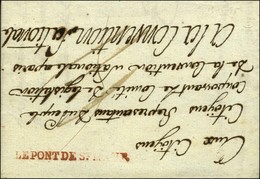 Aux Citoyens
Citoyens Representans du peuple
Composant le Comité de Legislation
De la Convention Nationale a paris
A la Convention Nationale
LE PONT DE